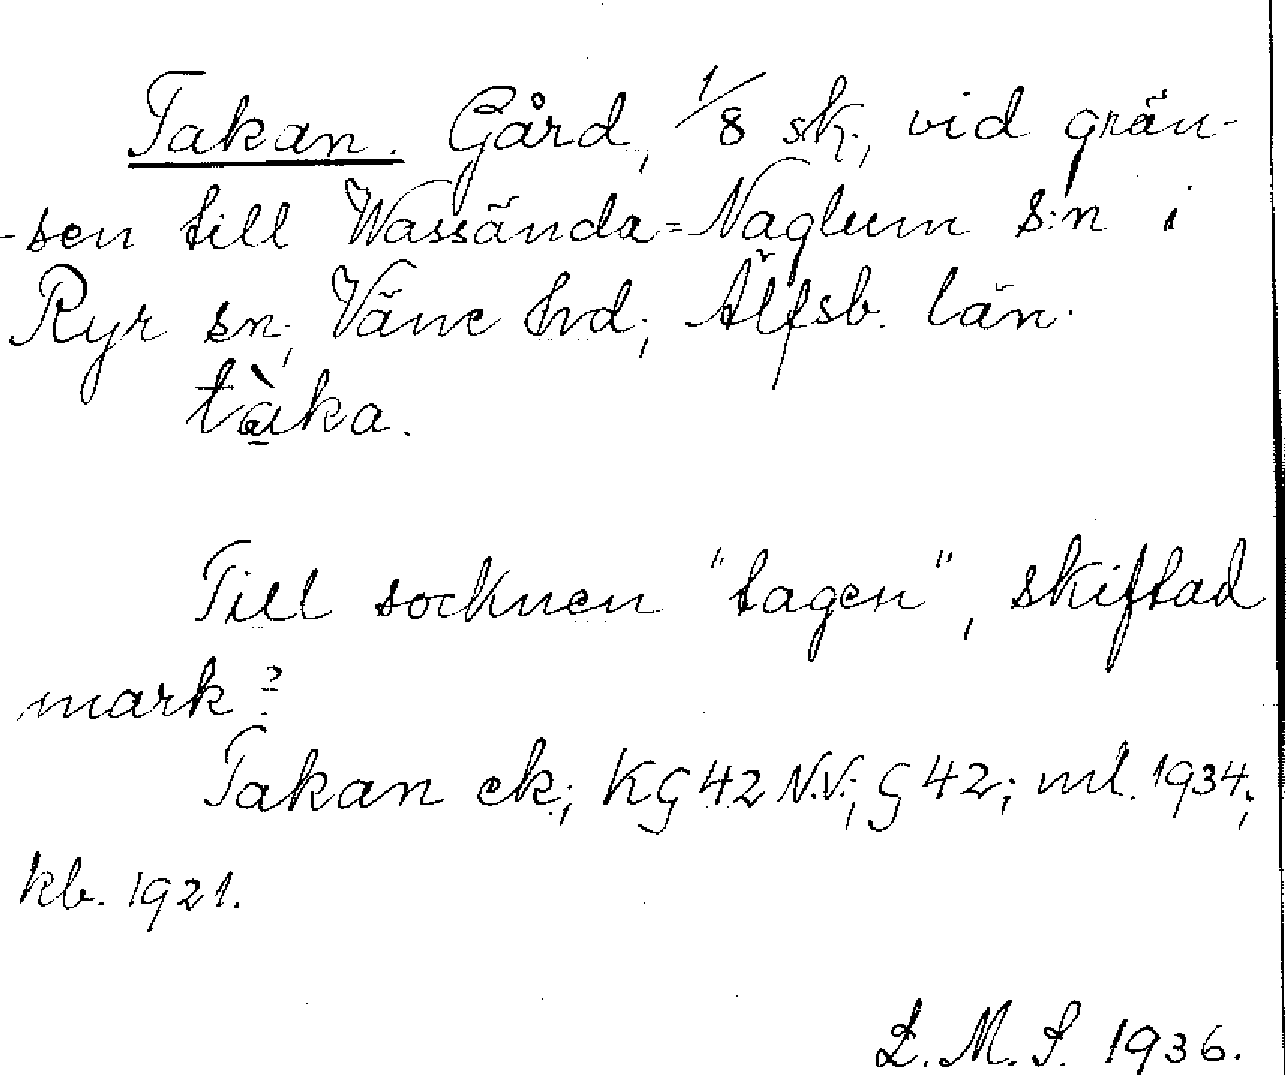 Takan. Gård, 1/8 sk., vid grän-
-sen till Wassända=Naglum s:n i
Ryr sn, Väne hd, Älfsb. län.
tàka.
Till socknen "tagen", skiftad
mark?
Takan ek; KG 42 N.V.; G 42; ml. 1934;
kb. 1921.
L. M. S. 1936.